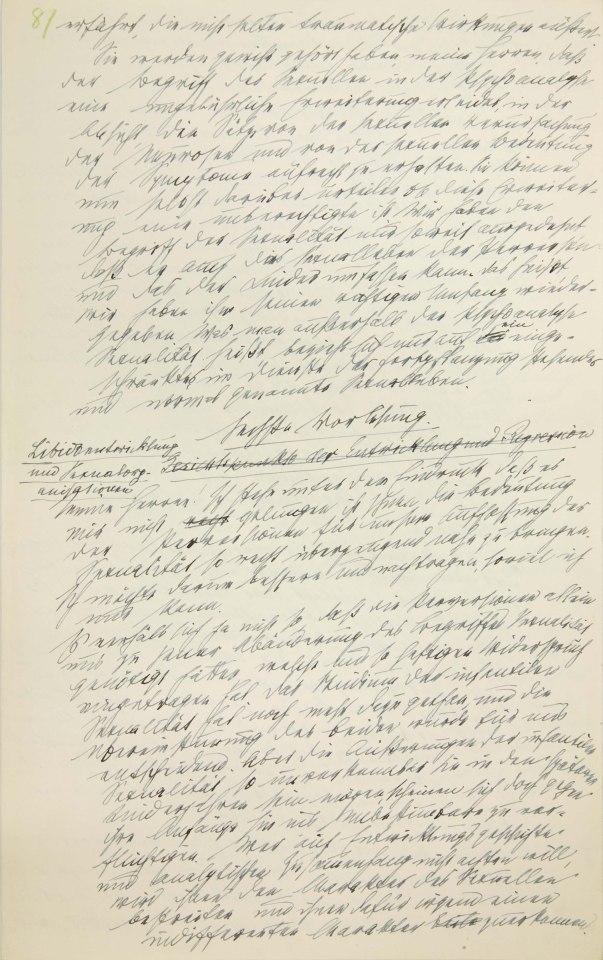 81
erfährt, die nicht selten traumatische Wirkungen äußert.
Sie werden gewiß gehört haben meine Herren, daß
der Begriff des Sexuellen in der Psychoanalyse
eine ungebührliche Erweiterung erleidet, in der
Absicht, die Sätze von der sexuellen Verursachung
der Neurosen und von der sexuellen Bedeutung
der Symptome aufrecht zu erhalten. Sie können
nun selbst darüber urteilen ob diese Erweiter-
ung eine unberechtigte ist. Wir haben den
Begriff der Sexualität nur soweit ausgedehnt
daß er auch das Sexualleben der Perversen
und das der Kinder umfassen kann. Das heißt
wir haben ihm seinen richtigen Umfang wieder-
gegeben. Was man außerhalb der Psychoanalyse
Sexualität heißt, bezieht sich nur auf ein einge-
schränktes im Dienste der Fortpflanzung stehendes
und normal genanntes Sexualleben.
Sechste Vorlesung.
Libidoentwicklung
und Sexualorg-
anisationen
Gesichtspunkte der Entwicklung und Regression
Meine Herren! Ich stehe unter dem Eindruck, daß es
mir nicht recht gelungen ist, Ihnen die Bedeutung
der Perversionen für unsere Auffassung der
Sexualität so recht überzeugend nahe zu bringen.
Ich möchte darum bessern und nachtragen soviel ich
nur kann.
Es verhält sich ja nicht so, daß die Perversionen allein
uns zu jener Abänderung des Begriffes Sexualität
genötigt hätten, welche uns so heftigen Widerspruch
eingetragen hat. Das Studium der infantilen
Sexualität hat noch mehr dazu gethan und die
Übereinstimmung der beiden wurde für uns
entscheidend. Aber die Äußerungen der infantilen
Sexualität, so unverkennbar sie in den späteren
Kinderjahren sein mögen, scheinen sich doch gegen
ihre Anfänge hin ins Unbestimmbare zu ver-
flüchtigen. Wer auf Entwicklungsgeschichte
und analytischen Zusammenhang nicht achten will,
wird ihnen den Charakter des Sexuellen
bestreiten und ihnen dafür irgend einen
indifferenten Charakter zuerkennen.